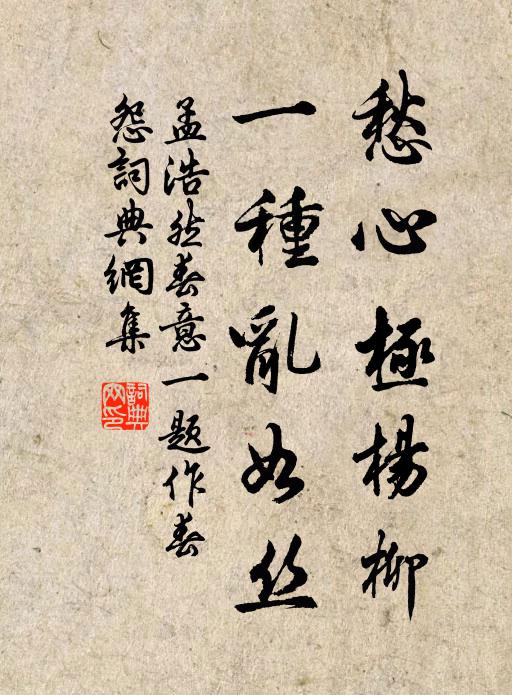 愁心極楊柳
一種亂如丝
孟浩然春意一題作春
怨詞典網集
詞典網印